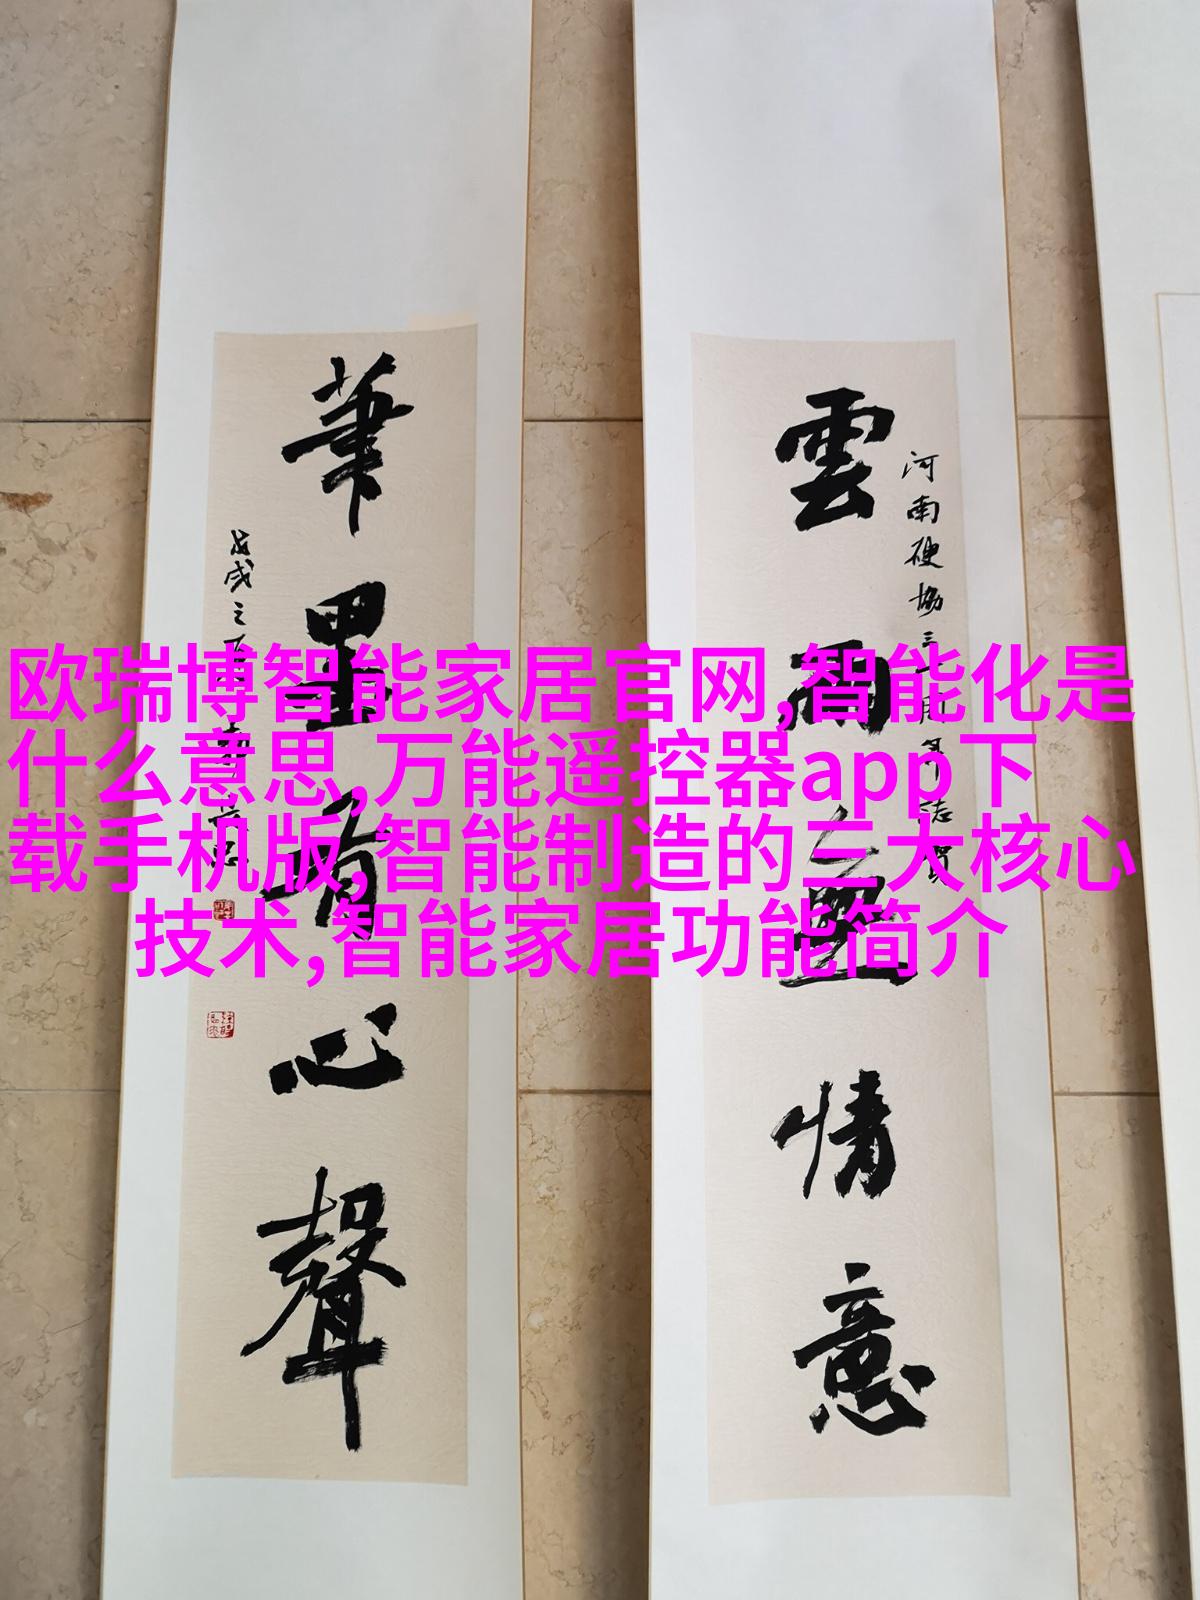 欧瑞博智能家居官网,智能化是
什么意思,万能遥控器app下
载手机版,智能制造的三大核心
技术,智能家居功能简介
河南硬協三十周年誌賀
雲雨無情意
筆墨有心聲
戊戌之